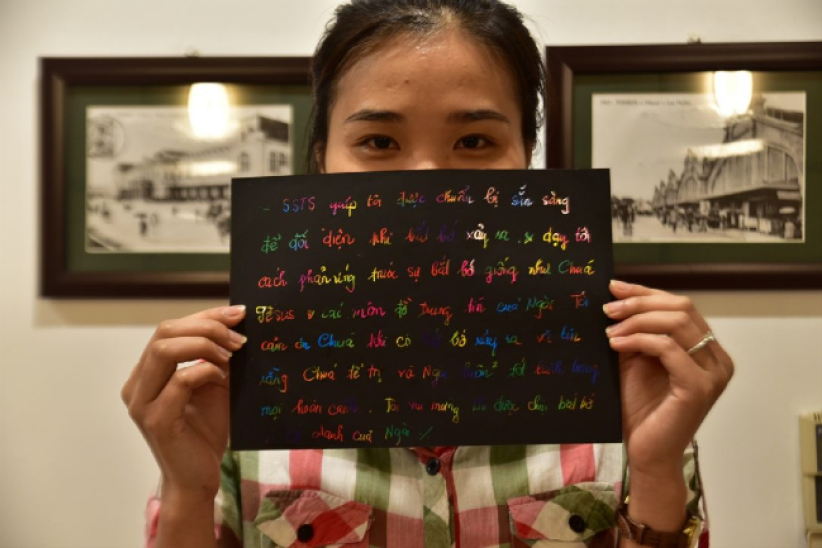 - SSTS giúp tôi được chuẩn bị sẵn sàng
để đối diện khi bắt bớ xảy ra. Nó dạy tôi
cách phản ứng trước sự bắt bớ giống như Chúa
Jêsus & các môn đồ trung tín của Ngài. Tôi
cảm ơn Chúa khi có bắt bớ xảy ra vì tin
rằng Chúa tể trị và Ngài luôn² tốt lành trong
mọi hoàn cảnh. Tôi vui mừng khi được chịu bắt bớ
danh của Ngài ./